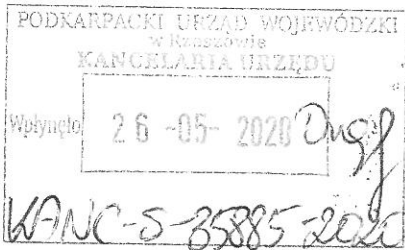 PODKARPACKI URZĄD WOJEWÓDZKI
w Rzeszowie
KANCELARIA URZĘDU
Wpłynęło 26 -05- 2020
KANC-S-35885-2020